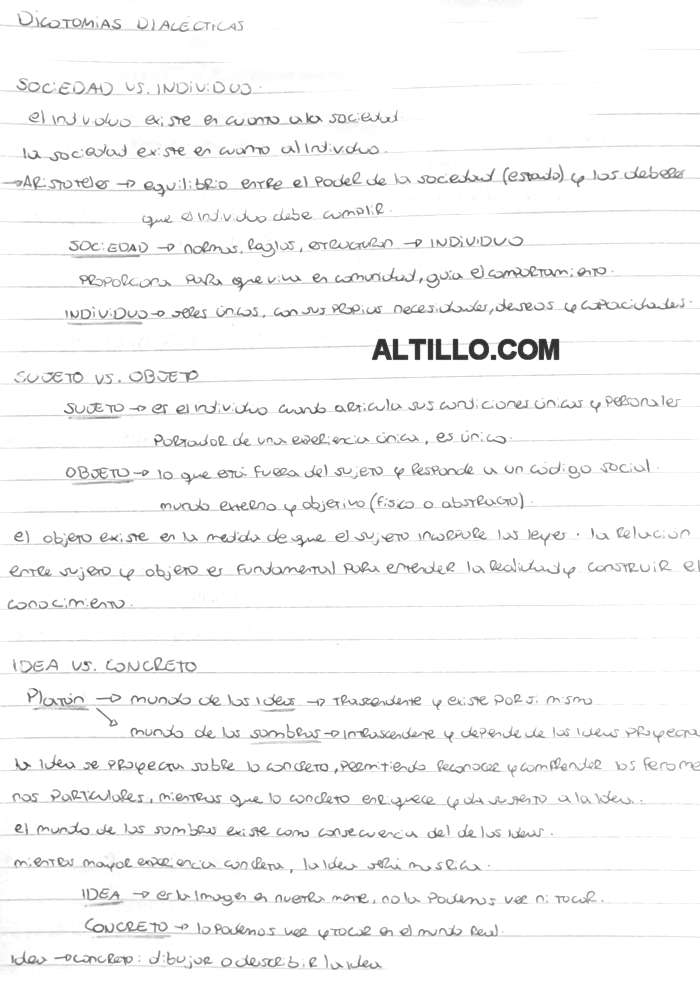 DICOTOMIAS DIALECTICAS
SOCIEDAD VS. INDIVIDUO.
el individuo existe en cuanto a la sociedad
la sociedad existe en cuanto al individuo.
→ARISTOTELES → equilibrio entre el poder de la sociedad (estado) y los deberes
que el individuo debe cumplir.
SOCIEDAD → normas, reglas, estructura → INDIVIDUO
PROPORCIONA PARA que viva en comunidad, guia el comportamiento.
INDIVIDUO → seres únicos, con sus propias necesidades, deseos y capacidades.
ALTILLO.COM
SUJETO VS. OBJETO
SUJETO → es el individuo cuando articula sus condiciones únicas y personales
Portador de una experiencia única, es único.
OBJETO → lo que está fuera del sujeto y responde a un código social.
mundo externo y objetivo (fisico o abstracto).
el objeto existe en la medida de que el sujeto incorpore las leyes. la relacion
entre sujeto y objeto es fundamental para entender la realidad y construir el
conocimiento.
IDEA VS. CONCRETO
Platón → mundo de las ideas → trascendente y existe por si mismo
mundo de las sombras → intrascendente y depende de las ideas proyecta
la idea se proyecta sobre lo concreto, permitiendo reconocer y comprender los fenome
nos particulares, mientras que lo concreto enriquece y da sustento a la idea.
el mundo de las sombras existe como consecuencia del de las ideas.
mientras mayor experiencia concreta, la idea será mas rica.
IDEA → es la imagen en nuestra mente, no la podemos ver ni tocar.
CONCRETO → lo podemos ver y tocar en el mundo real.
Idea → concreto: dibujar o describir la idea